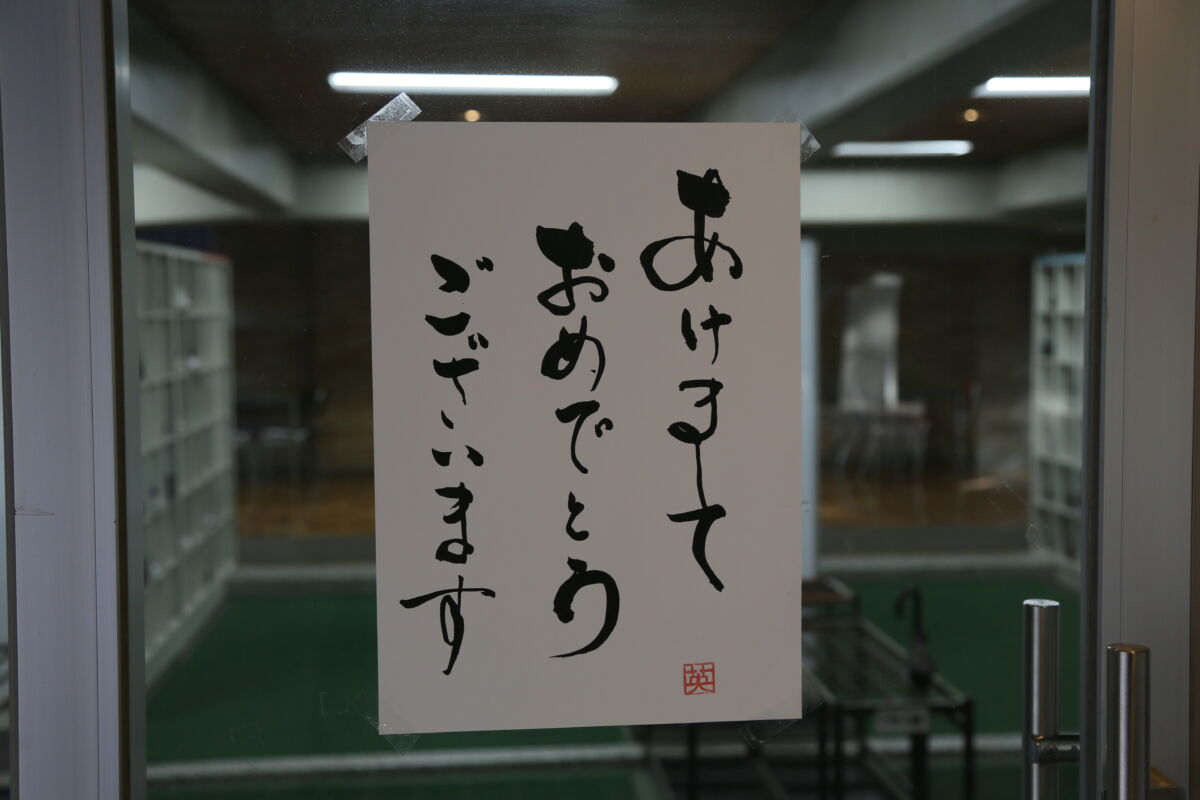 あけまして
おめでとう
ございます
英